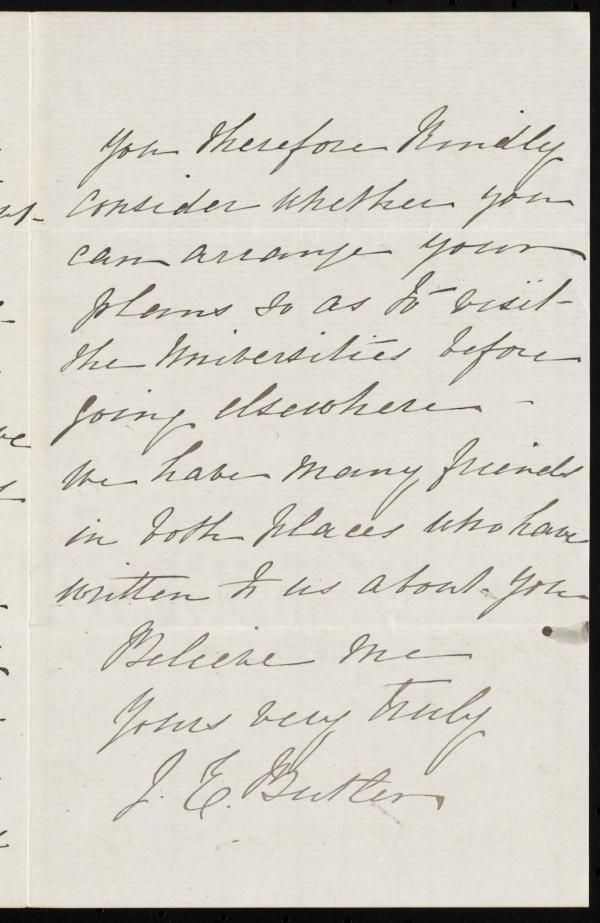 you therefore kindly
consider whether you
can arrange your
plans so as to visit
the Universities before
going elsewhere -
We have many friends
in both places who have
written to us about you
Believe me
Yours very truly
J. E. Butler